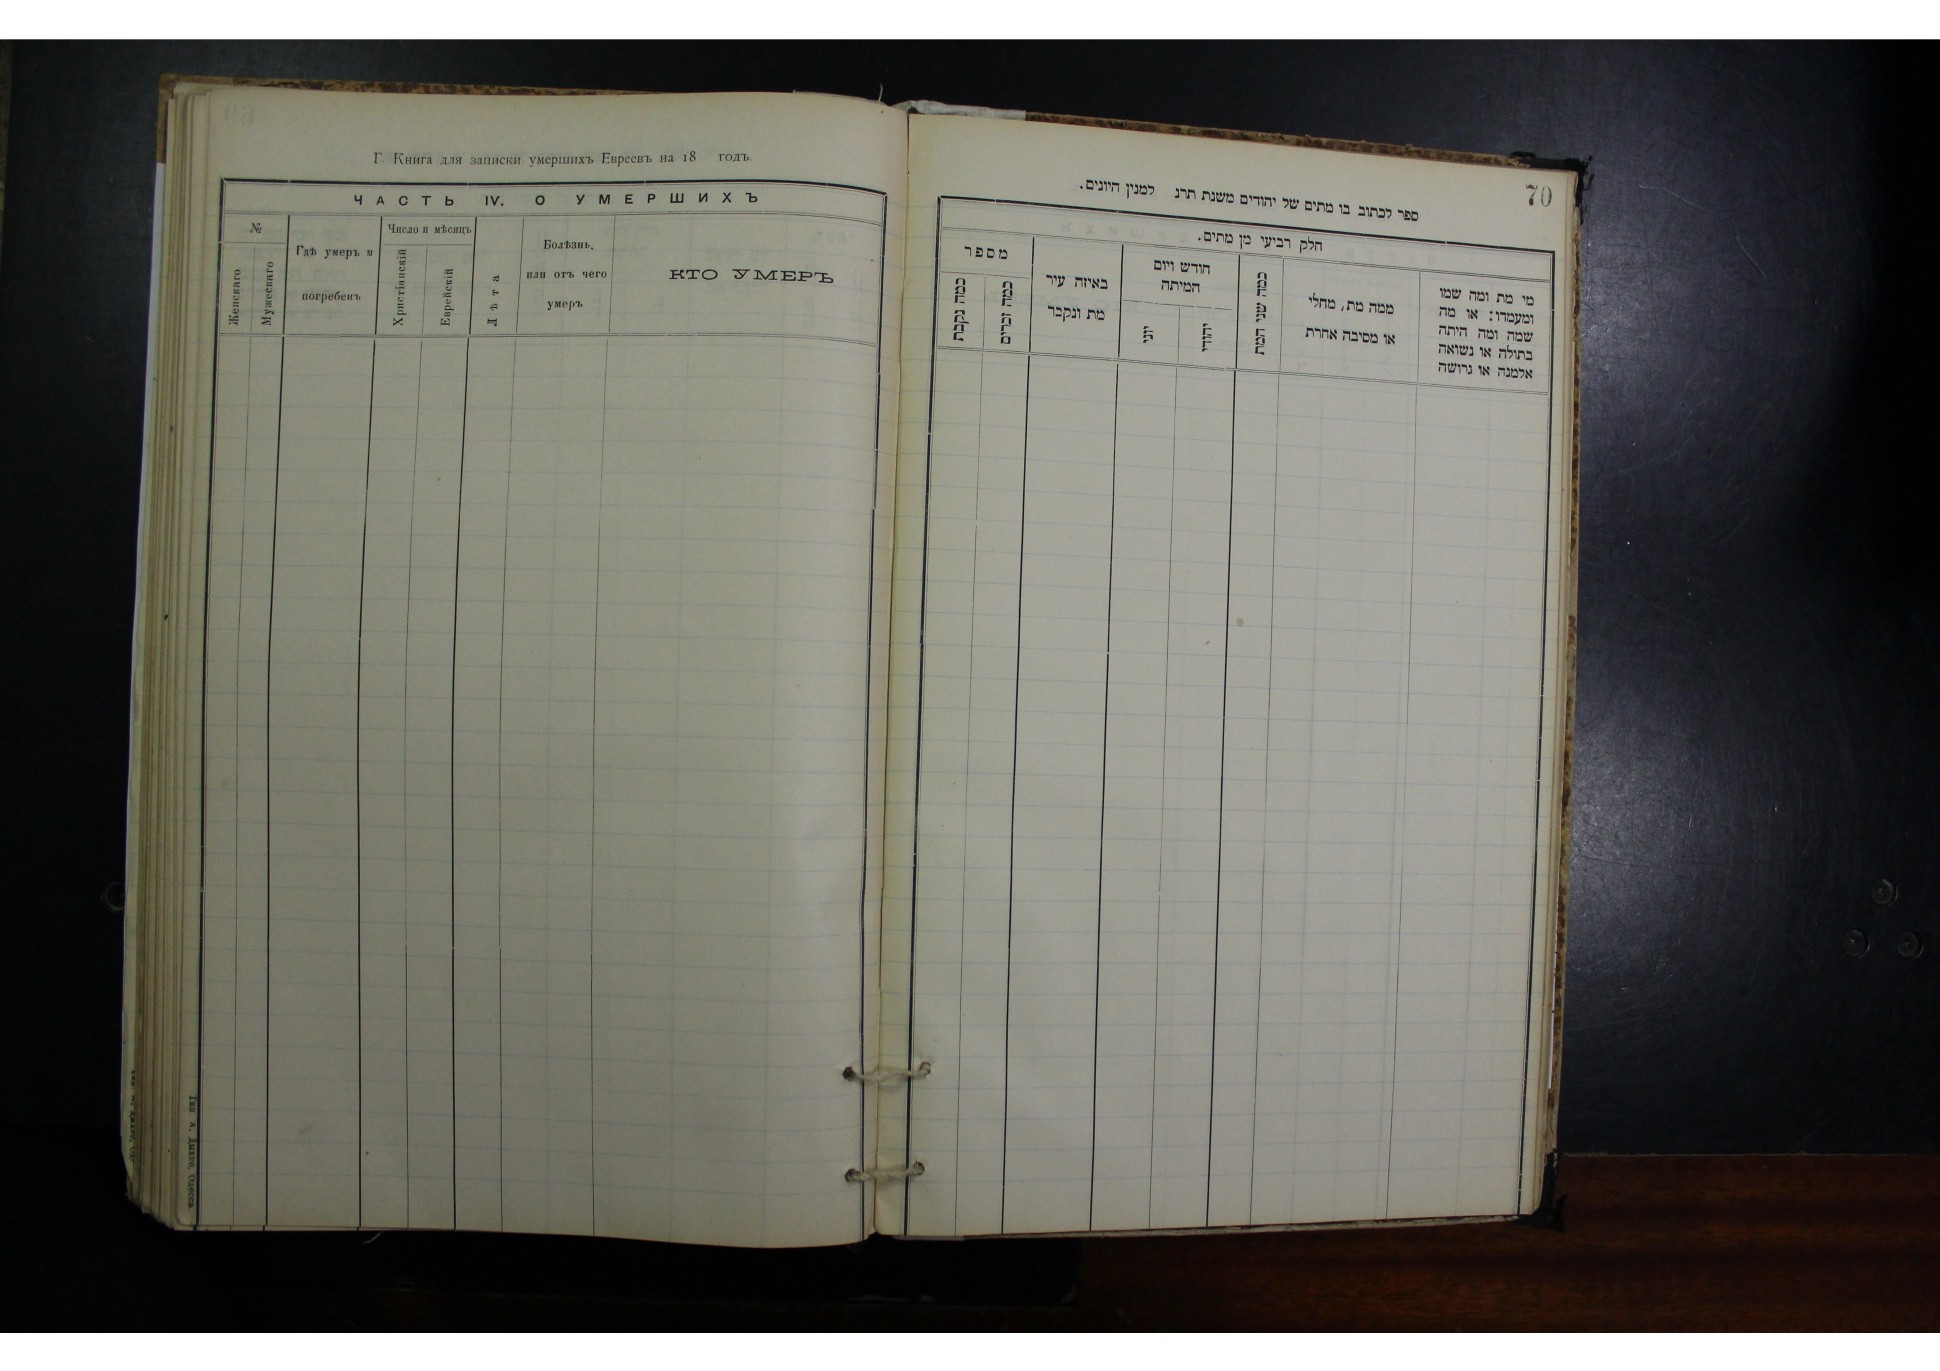 Г. Книга для записки умершихъ Евреевъ на 18 годъ.
ЧАСТЬ IV. О УМЕРШИХЪ
№
Женскаго
Мужескаго
Гдѣ умеръ и
погребенъ
Число и мѣсяцъ
Христіанскій
Еврейскій
Лѣта
Болѣзнь,
или отъ чего
умеръ
КТО УМЕРЪ
Тип. А. Дыхно, Одесса
70
ספר לכתוב בו מתים של יהודים משנת תרנ למנין היונים.
חלק רביעי מן מתים.
מספר
כמה נקבת
כמה זכרים
באיזה עיר
מת ונקבר
חודש ויום
המיתה
יוני
יהודי
כמה שני המת
ממה מת, מחלי
או מסיבה אחרת
מי מת ומה שמו
ומעמדו: או מה
שמה ומה היתה
בתולה או נשואה
אלמנה או גרושה